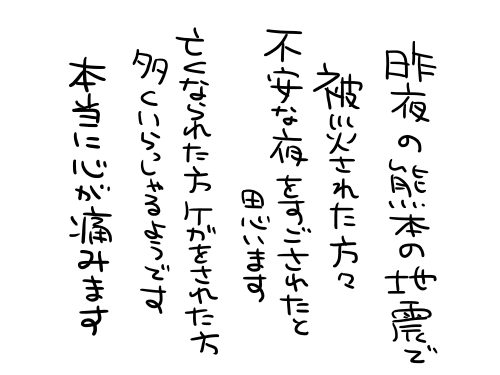 昨夜の熊本の地震で
被災された方々
不安な夜をすごされたと
思います
亡くなられた方ケガをされた方
多くいらっしゃるようです
本当に心が痛みます